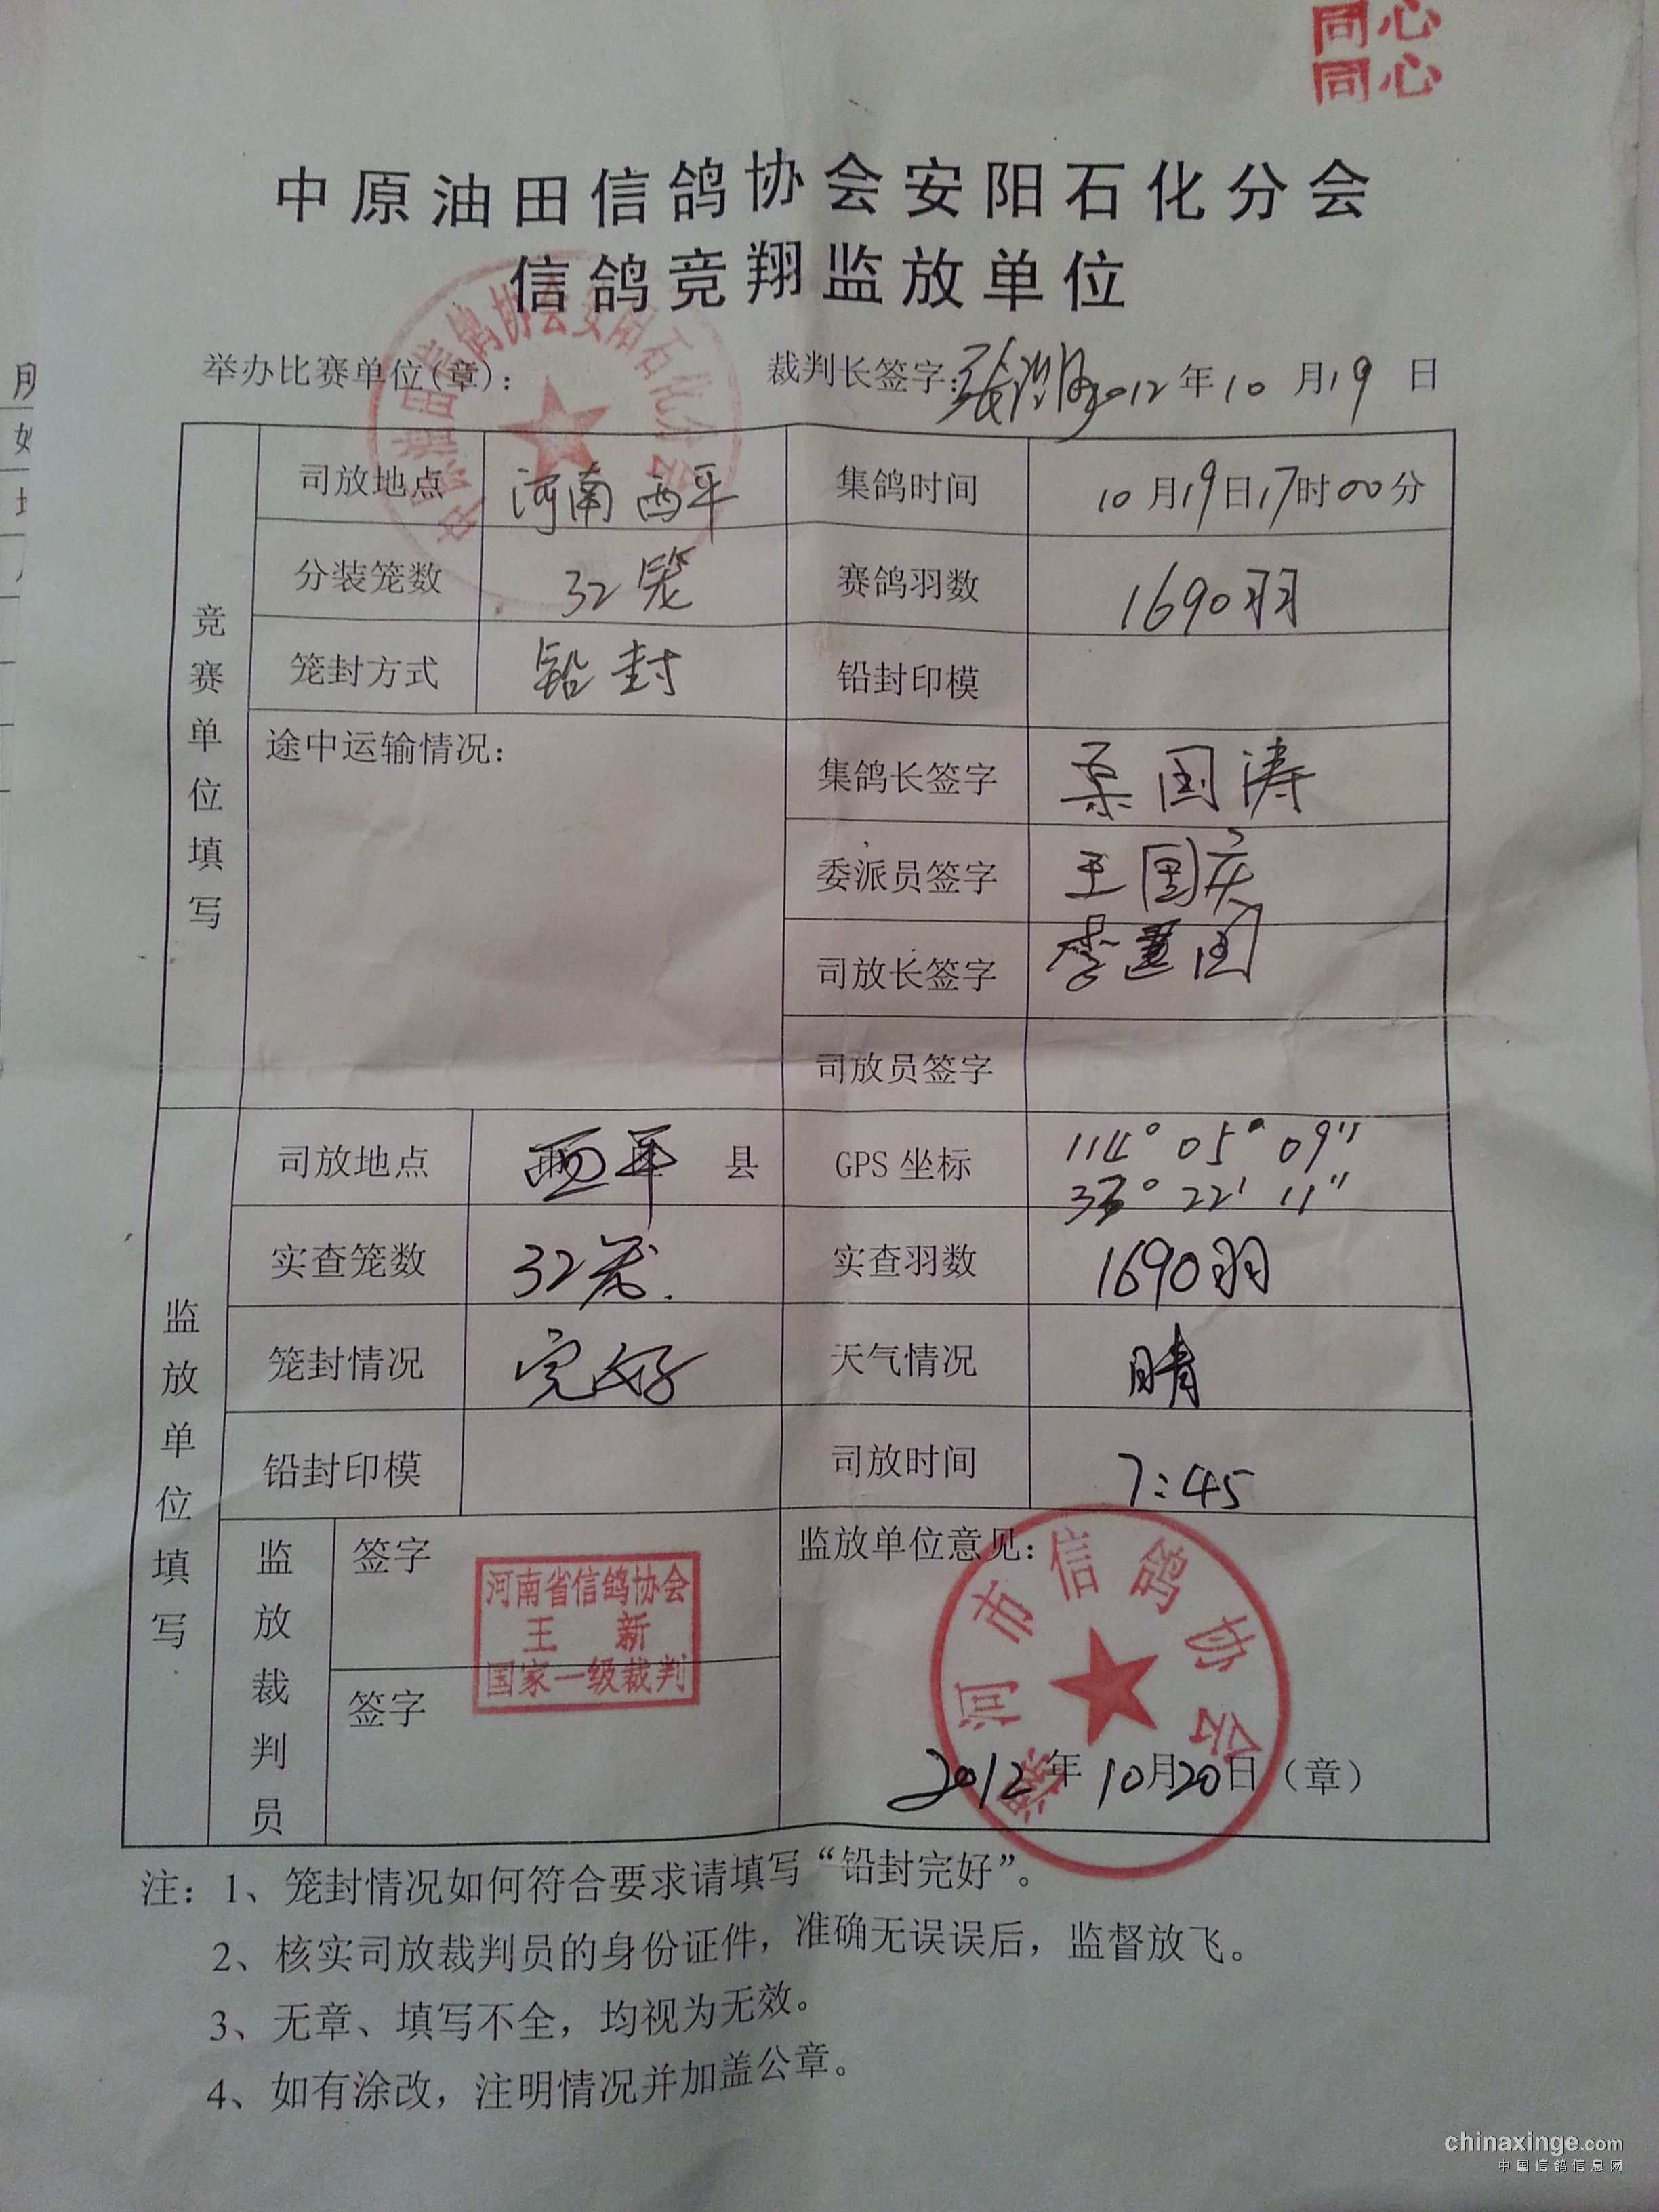 同心
同心
中原油田信鸽协会安阳石化分会
信鸽竞翔监放单位
举办比赛单位(章)： 裁判长签字: 2012年10月19日
中原油田信鸽协会安阳石化分会
竞赛单位填写
司放地点 河南西平 集鸽时间 10月19日17时00分
分装笼数 32笼 赛鸽羽数 1690羽
笼封方式 铅封 铅封印模
途中运输情况： 集鸽长签字 国涛
委派员签字 王国庆
司放长签字 李建国
司放员签字
监放单位填写
司放地点 西平 县 GPS坐标 114° 05° 09"
33° 22' 11"
实查笼数 32笼. 实查羽数 1690羽
笼封情况 完好 天气情况 晴
铅封印模 司放时间 7:45
监放裁判员 签字 监放单位意见：
河南省信鸽协会
王 新
国家一级裁判
签字
漯河市信鸽协会
2012年10月20日（章）
注：1、笼封情况如何符合要求请填写“铅封完好”。
2、核实司放裁判员的身份证件，准确无误误后，监督放飞。
3、无章、填写不全，均视为无效。
4、如有涂改，注明情况并加盖公章。
chinaxinge.com
中国信鸽信息网